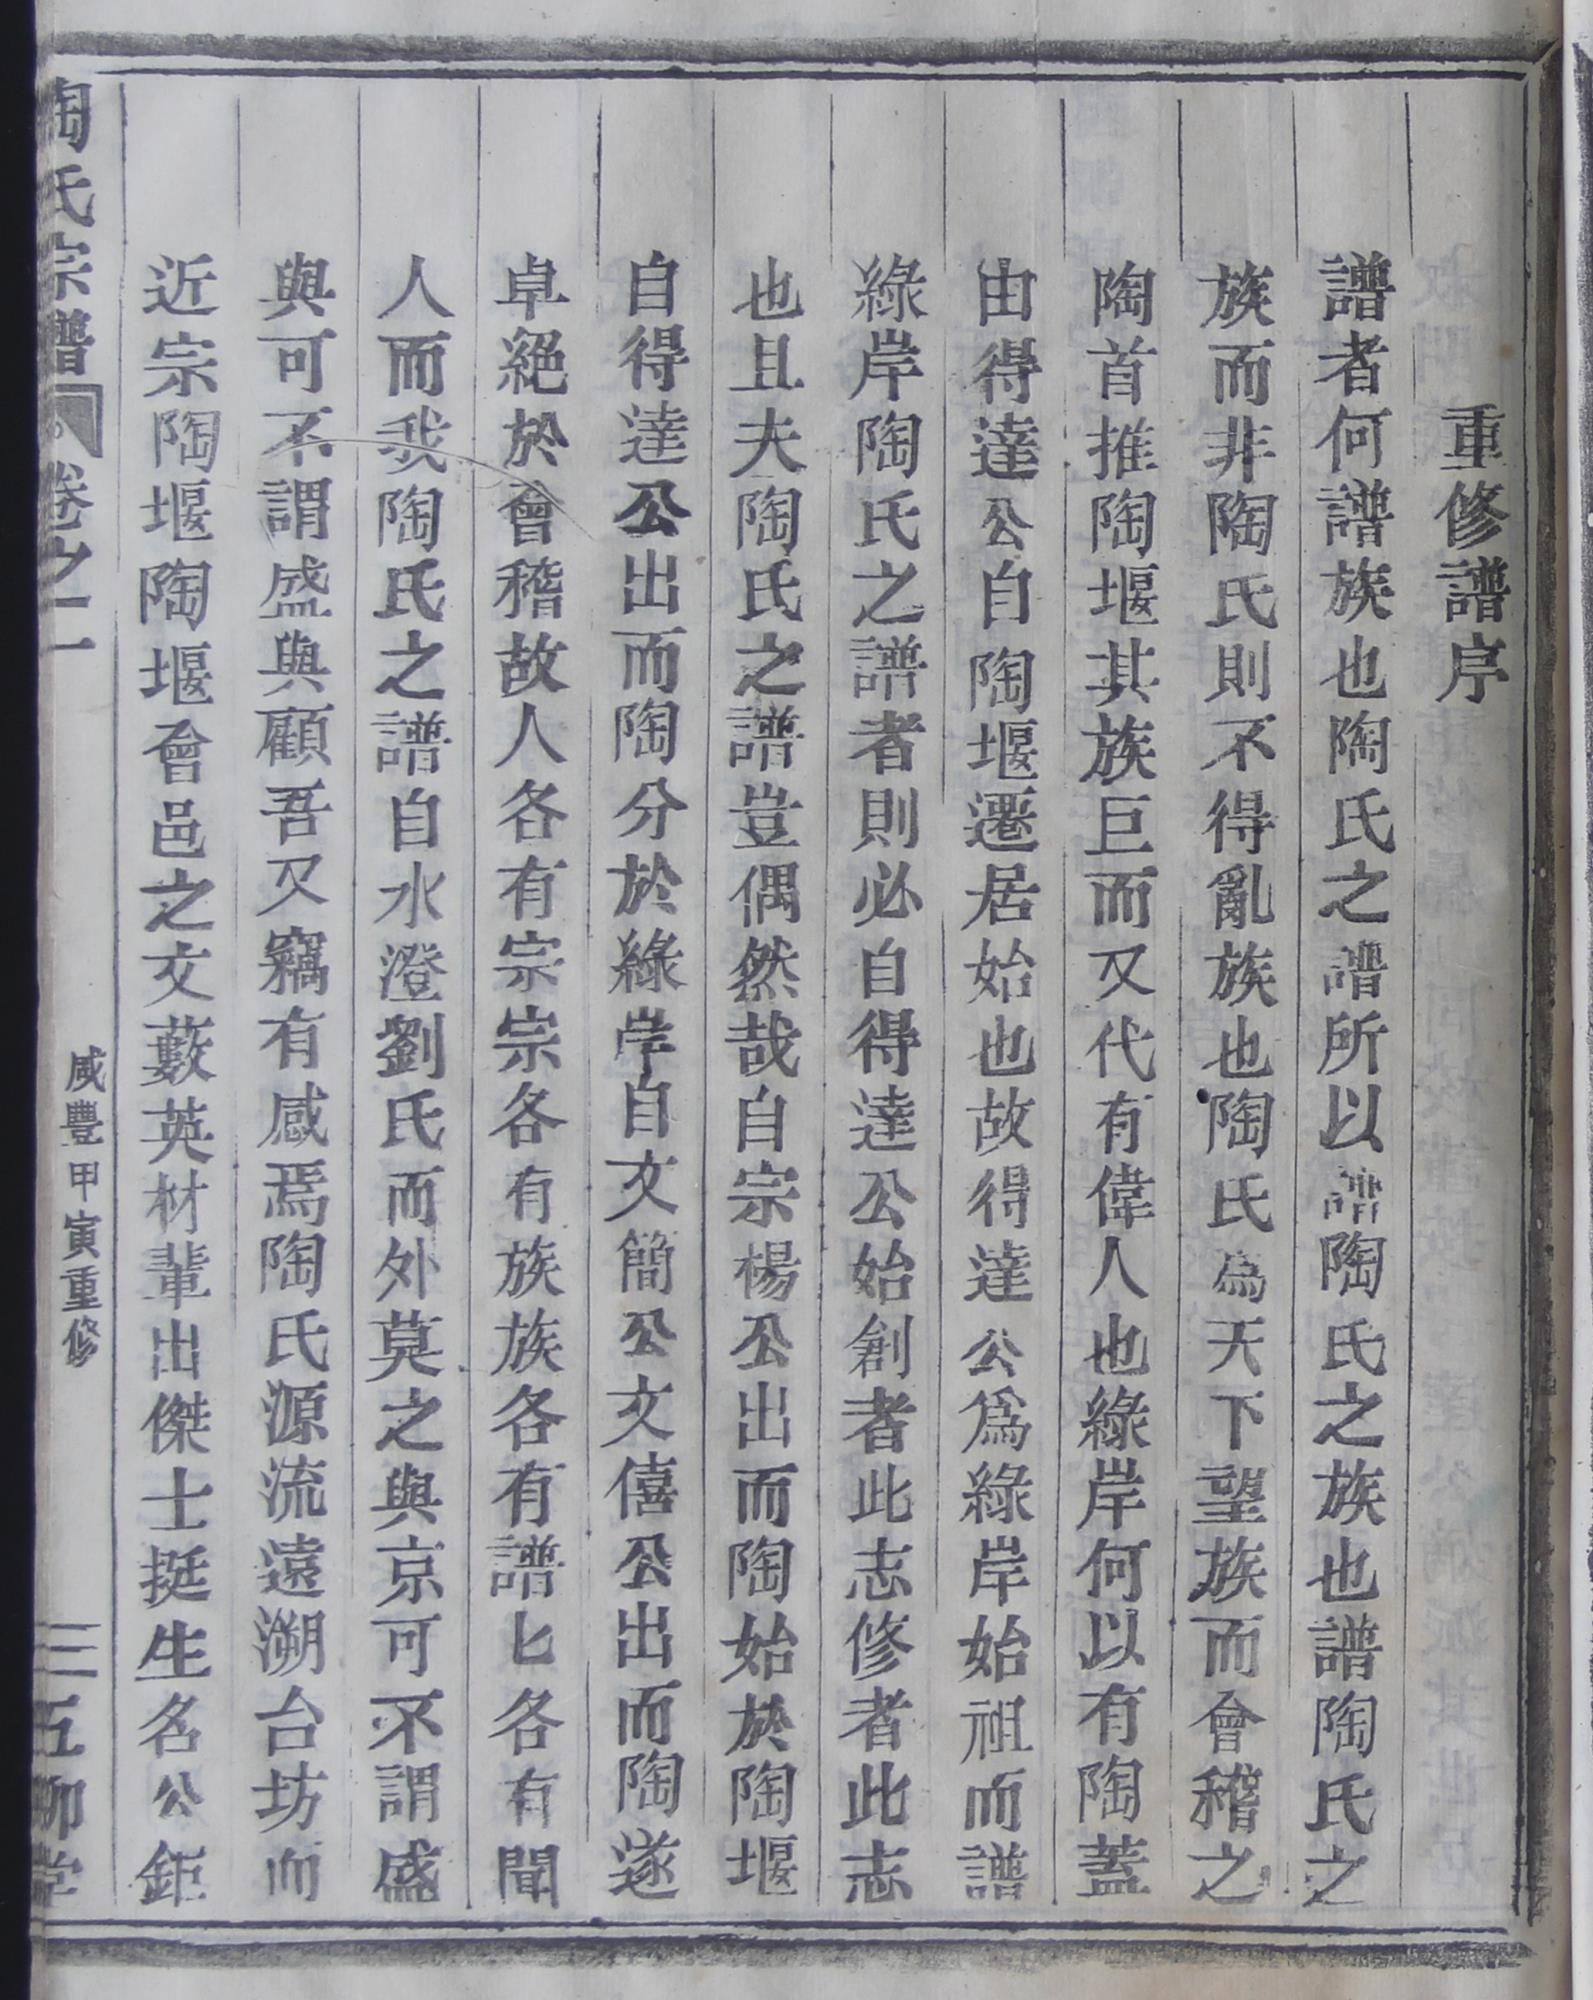 重修譜序
譜者何譜族也陶氏之譜所以譜陶氏之族也譜陶氏之
族而非陶氏則不得亂族也陶氏為天下望族而會稽之
陶首推陶堰其族巨而又代有偉人也綠岸何以有陶蓋
由得達公自陶堰遷居始也故得達公爲綠岸始祖而譜
綠岸陶氏之譜者則必自得達公始創者此志修者此志
也且夫陶氏之譜豈偶然哉自宗楊公出而陶始於陶堰
自得達公出而陶分於綠岸自文簡公文僖公出而陶遂
卓絕於會稽故人各有宗宗各有族族各有譜匕各有聞
人而我陶氏之譜自水澄劉氏而外莫之與京可不謂盛
與可不謂盛與顧吾又竊有感焉陶氏源流遠溯台坊而
近宗陶堰陶堰會邑之文藪英材輩出傑士挺生名公鉅
陶氏宗譜 卷之一 咸豐甲寅重修 三 五柳堂